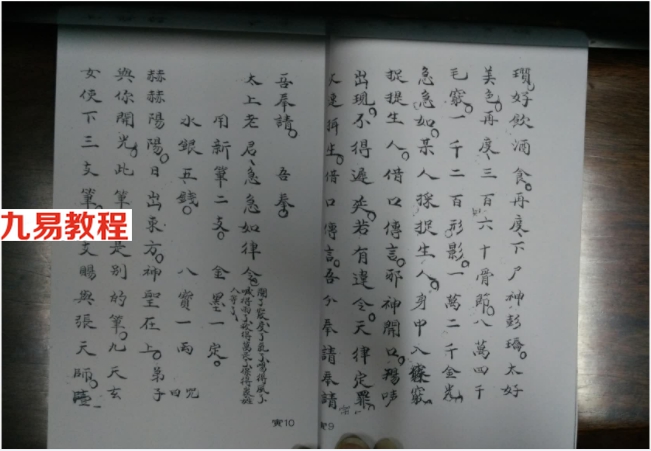 瓚好飲酒食再度下尸神彭瑻太好
美色再度三百六十骨節八萬四千
毛竅一千二百形影一萬二千金光
急急如某人採捉生人身中入竅
捉捉生人借口傳言邪神開口
出現不得遲爽若有違令天律定罪
生借口傳言吾今奉請奉請
9
吾奉請 吾奉
太上老君急急如律令
用新筆二支 金墨一定
水銀五錢 八寶一兩
四兇
赫赫陽陽日出東方神聖在上弟子
與你開光此筆是別的筆九天玄
女使下三支筆支賜與張天師
10
九易教程